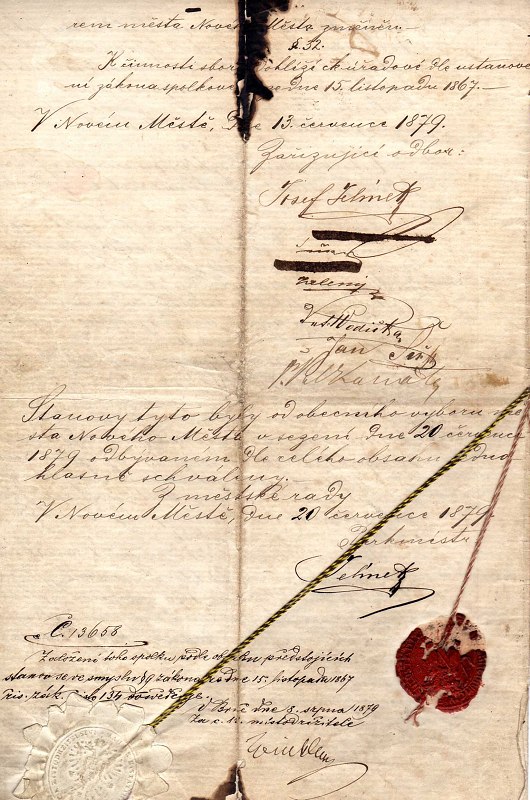 rem města Nového Města změněn.—
§. 32.
K činnosti sboru dohlíží c.k. úřadové dle ustanove-
ní zákona spolkového ode dne 15. listopadu 1867.—
V Novém Městě, dne 13. července 1879.
Zařizující odbor:
Josef Jelínek
Zelený
Jan
Stanovy tyto byly od obecního výboru mě-
sta Nového Města v sezení dne 20 července
1879 odbývaném dle celého obsahu jedno-
hlasně schváleny.
Z městské rady
V Novém Městě, dne 20 července 1879.
Purkmistr
Jelínek
Č. 13658
Založení toho spolku podle obsahu předstojících
stanov se ve smyslu § 9 zákona ze dne 15. listopadu 1867
říš. zák. číslo 134 dosvědčuje.
V Brně dne 8. srpna 1879
Za c. k. místodržitele